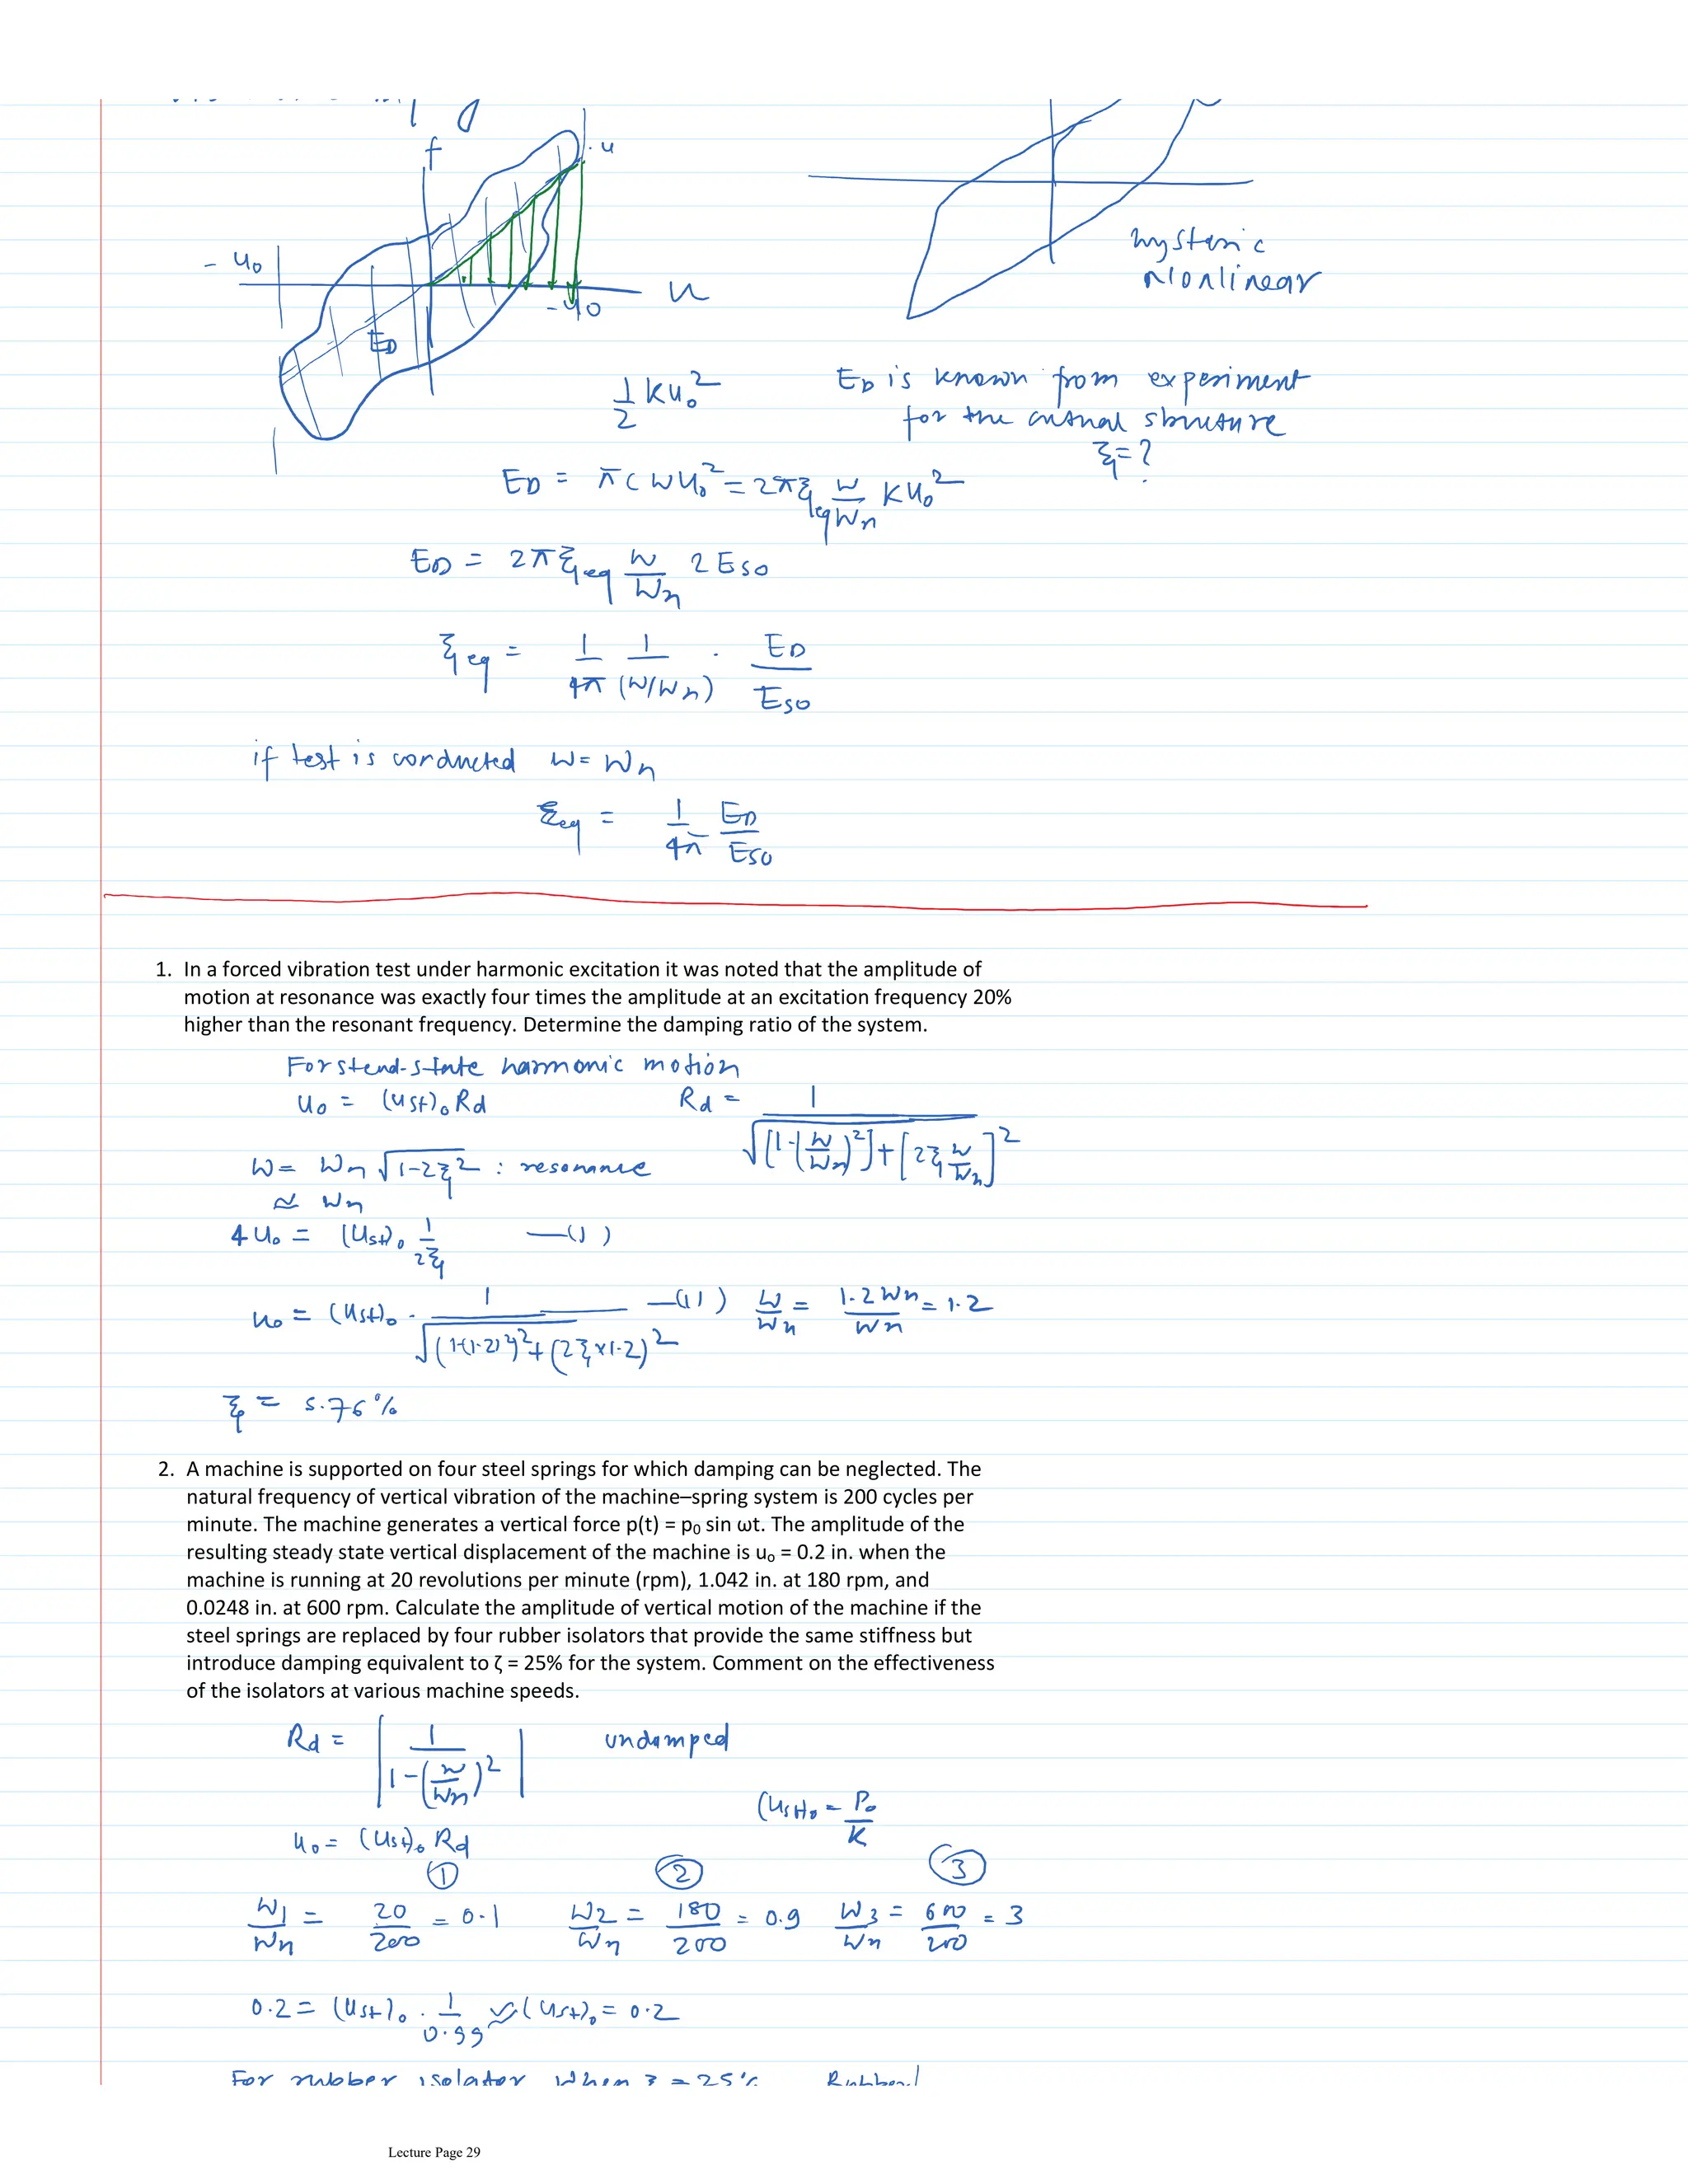 f
u
- u₀
u
-u₀
E_D
hysteric
nlonlinear
1/2 ku₀²
E_D is known from experiment
for the actual structure
ξ = ?
E_D = πcωu₀² = 2πξ_eq ω/ωn ku₀²
E_D = 2πξ_eq ω/ωn 2E_so
ξ_eq = 1/4π 1/(ω/ωn) · E_D/E_so
if test is conducted ω = ωn
ξ_eq = 1/4π E_D/E_so
1. In a forced vibration test under harmonic excitation it was noted that the amplitude of
motion at resonance was exactly four times the amplitude at an excitation frequency 20%
higher than the resonant frequency. Determine the damping ratio of the system.
For stend-state harmonic motion
u₀ = (ust)₀ Rd Rd = 1/√([1-(ω/ωn)²]+[2ξ ω/ωn]²)
ω = ωn √(1-2ξ²) : resonance
≈ ωn
4u₀ = (ust)₀ 1/2ξ —(1)
u₀ = (ust)₀ · 1/√((1-(1.2)²)²+(2ξ×1.2)²) —(11) ω/ωn = 1.2ωn/ωn = 1.2
ξ = 5.76%
2. A machine is supported on four steel springs for which damping can be neglected. The
natural frequency of vertical vibration of the machine–spring system is 200 cycles per
minute. The machine generates a vertical force p(t) = p₀ sin ωt. The amplitude of the
resulting steady state vertical displacement of the machine is uₒ = 0.2 in. when the
machine is running at 20 revolutions per minute (rpm), 1.042 in. at 180 rpm, and
0.0248 in. at 600 rpm. Calculate the amplitude of vertical motion of the machine if the
steel springs are replaced by four rubber isolators that provide the same stiffness but
introduce damping equivalent to ζ = 25% for the system. Comment on the effectiveness
of the isolators at various machine speeds.
Rd = |1/(1-(ω/ωn)²)| undamped
(ust)₀ = P₀/K
u₀ = (ust)₀ Rd
① ② ③
ω1/ωn = 20/200 = 0.1 ω2/ωn = 180/200 = 0.9 ω3/ωn = 600/200 = 3
0.2 = (ust)₀ · 1/0.99 ≈ (ust)₀ = 0.2
For rubber isolator when ξ = 25% Rubber
Lecture Page 29